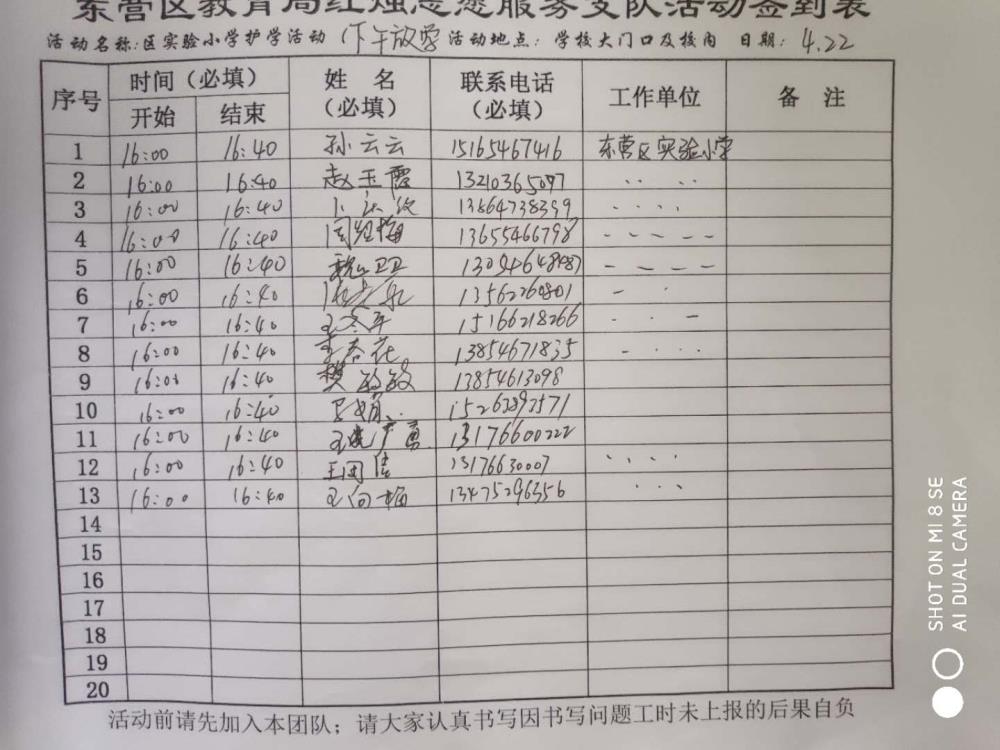 东营区教育局红烛志愿服务支队活动签到表
活动名称:区实验小学护学活动(下午放学 活动地点:学校大门口及校内 日期:4.22
序号 时间(必填) 姓名(必填) 联系电话(必填) 工作单位 备注
开始 结束
1 16:00 16:40 孙云云 15165467416 东营区实验小学
2 16:00 16:40 赵玉霞 13210365097
3 16:00 16:40 13864738399
4 16:00 16:40 13655466798
5 16:00 16:40 魏卫卫
6 16:00 16:40 13562260801
7 16:00 16:40 王冬平 15166218266
8 16:00 16:40 李春花 13854671835
9 16:00 16:40 樊敏敏 13854613098
10 16:00 16:40 15263892571
11 16:00 16:40 13176600222
12 16:00 16:40 13176630007
13 16:00 16:40 王向梅 13475296356
14
15
16
17
18
19
20
活动前请先加入本团队;请大家认真书写因书写问题工时未上报的后果自负
SHOT ON MI 8 SE
AI DUAL CAMERA